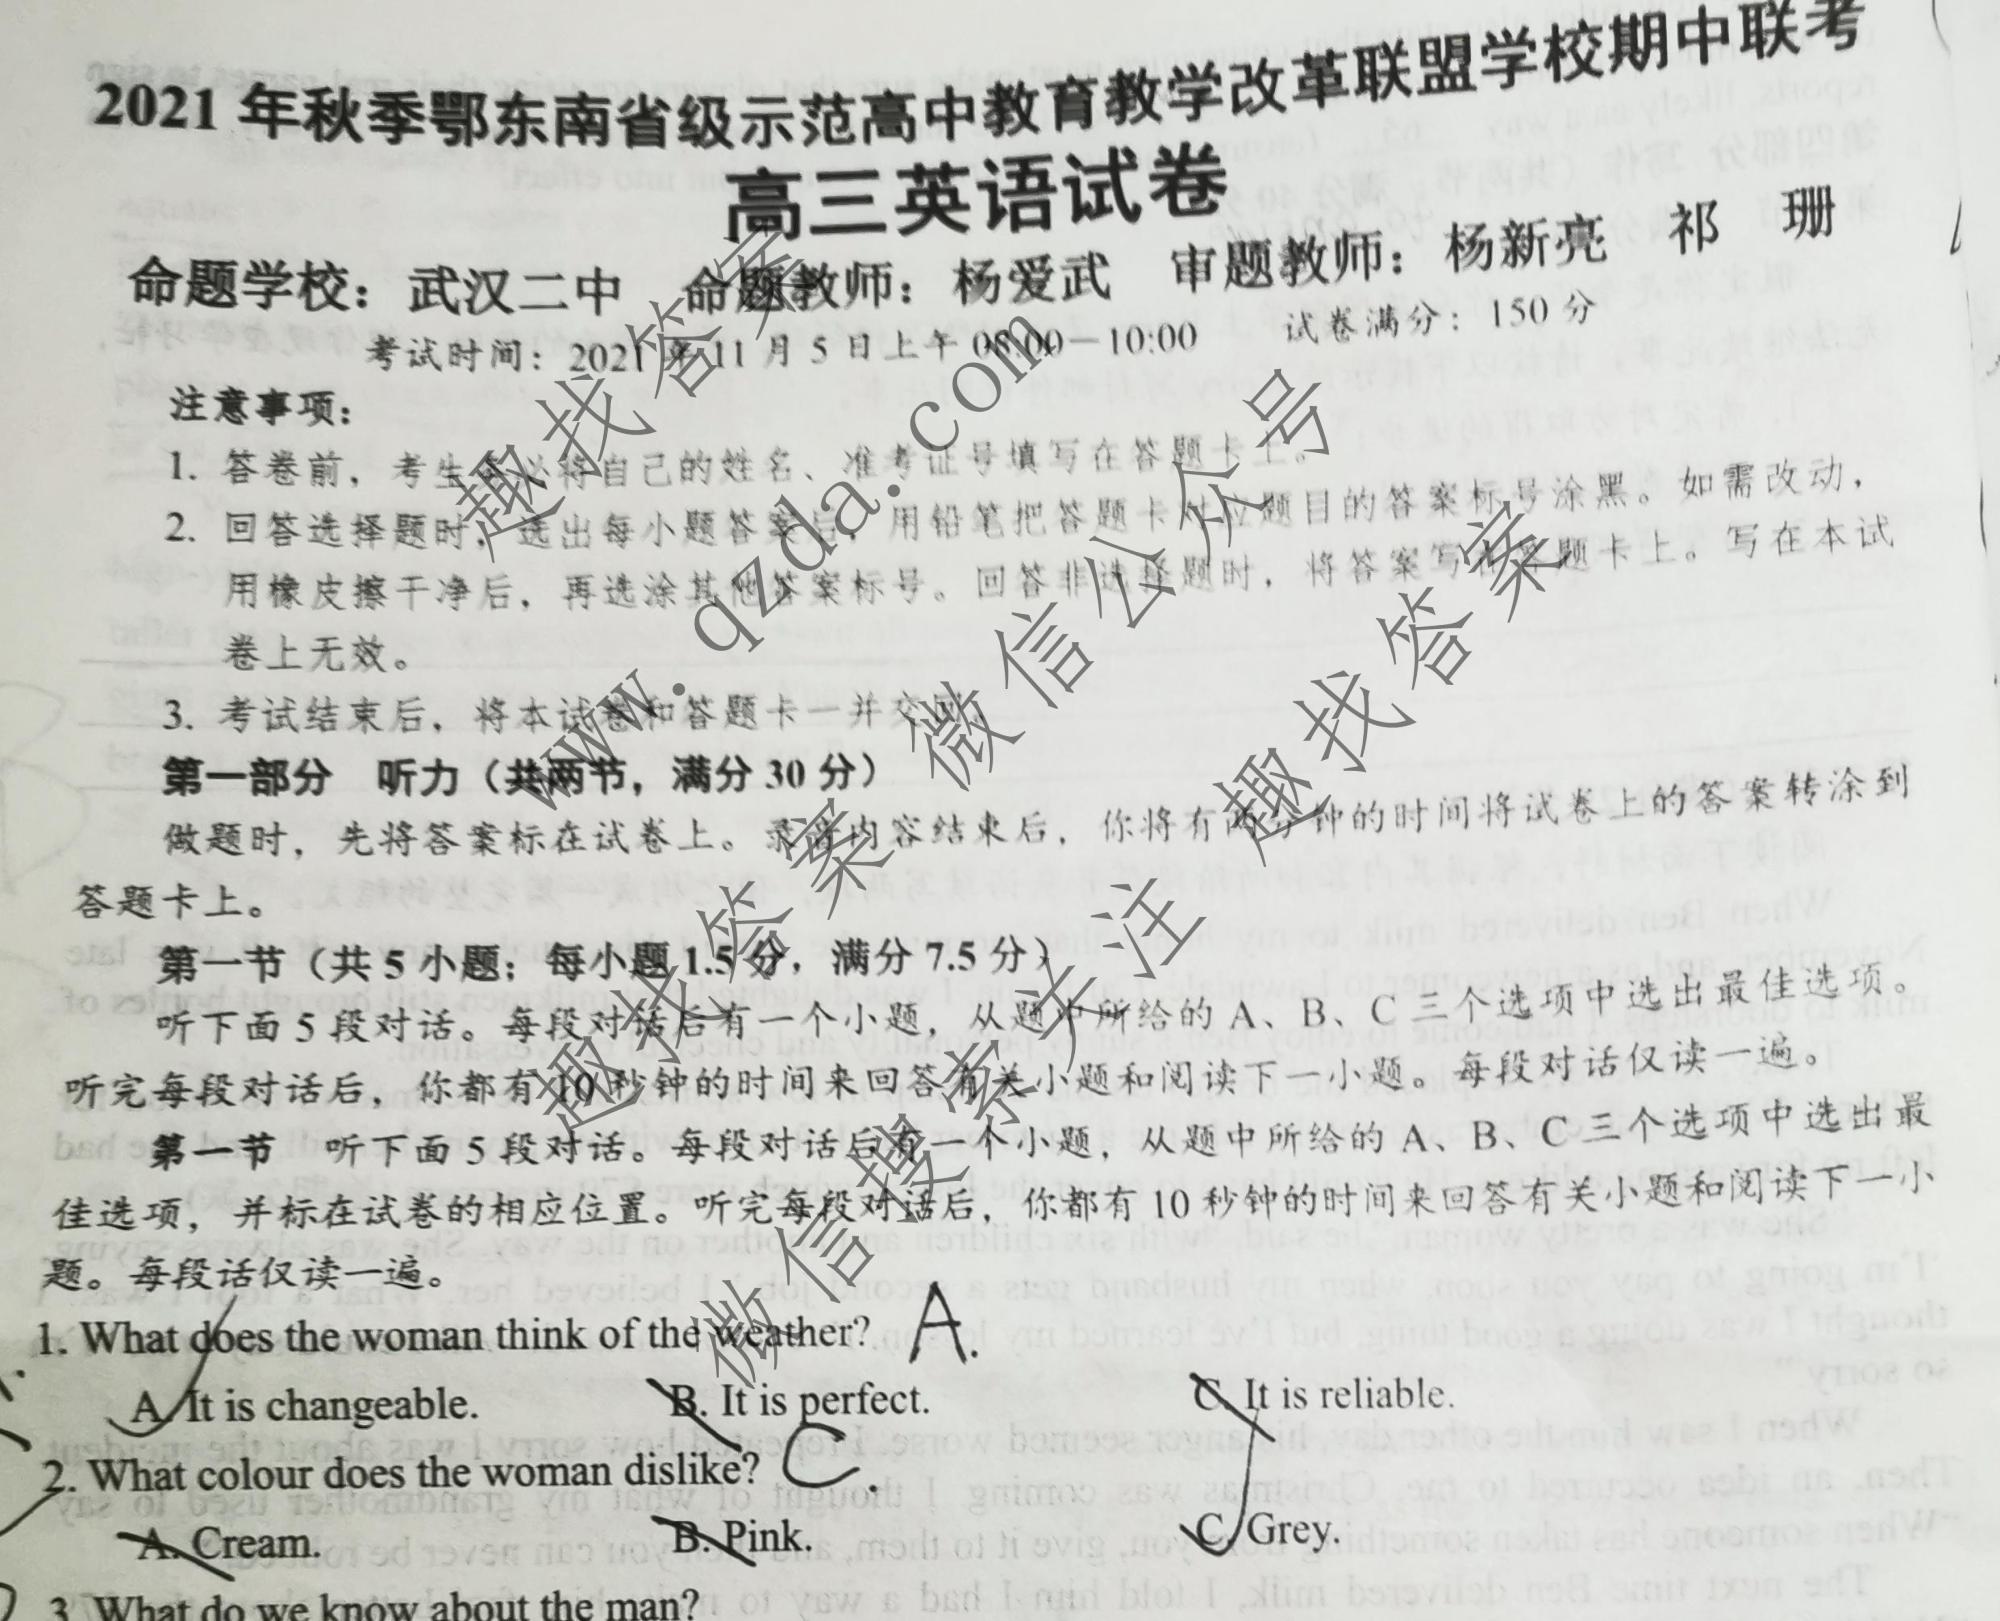 2021年秋季鄂东南省级示范高中教育教学改革联盟学校期中联考
高三英语试卷
命题学校：武汉二中 命题教师：杨爱武 审题教师：杨新亮 祁 珊
考试时间：2021年11月5日上午08:00－10:00 试卷满分：150分
注意事项：
1. 答卷前，考生务必将自己的姓名、准考证号填写在答题卡上。
2. 回答选择题时，选出每小题答案后，用铅笔把答题卡对应题目的答案标号涂黑。如需改动，
用橡皮擦干净后，再选涂其他答案标号。回答非选择题时，将答案写在答题卡上。写在本试
卷上无效。
3. 考试结束后，将本试卷和答题卡一并交回。
第一部分 听力（共两节，满分30分）
做题时，先将答案标在试卷上。录音内容结束后，你将有两分钟的时间将试卷上的答案转涂到
答题卡上。
第一节（共5小题；每小题1.5分，满分7.5分）
听下面5段对话。每段对话后有一个小题，从题中所给的A、B、C三个选项中选出最佳选项。
听完每段对话后，你都有10秒钟的时间来回答有关小题和阅读下一小题。每段对话仅读一遍。
第一节 听下面5段对话。每段对话后有一个小题，从题中所给的A、B、C三个选项中选出最
佳选项，并标在试卷的相应位置。听完每段对话后，你都有10秒钟的时间来回答有关小题和阅读下一小
题。每段话仅读一遍。
1. What does the woman think of the weather? A.
A. It is changeable. B. It is perfect. C. It is reliable.
2. What colour does the woman dislike? C.
A. Cream. B. Pink. C. Grey.
3. What do we know about the man?
趣找答案
www.qzda.com
微信公众号
趣找答案
趣找答案
微信搜索关注